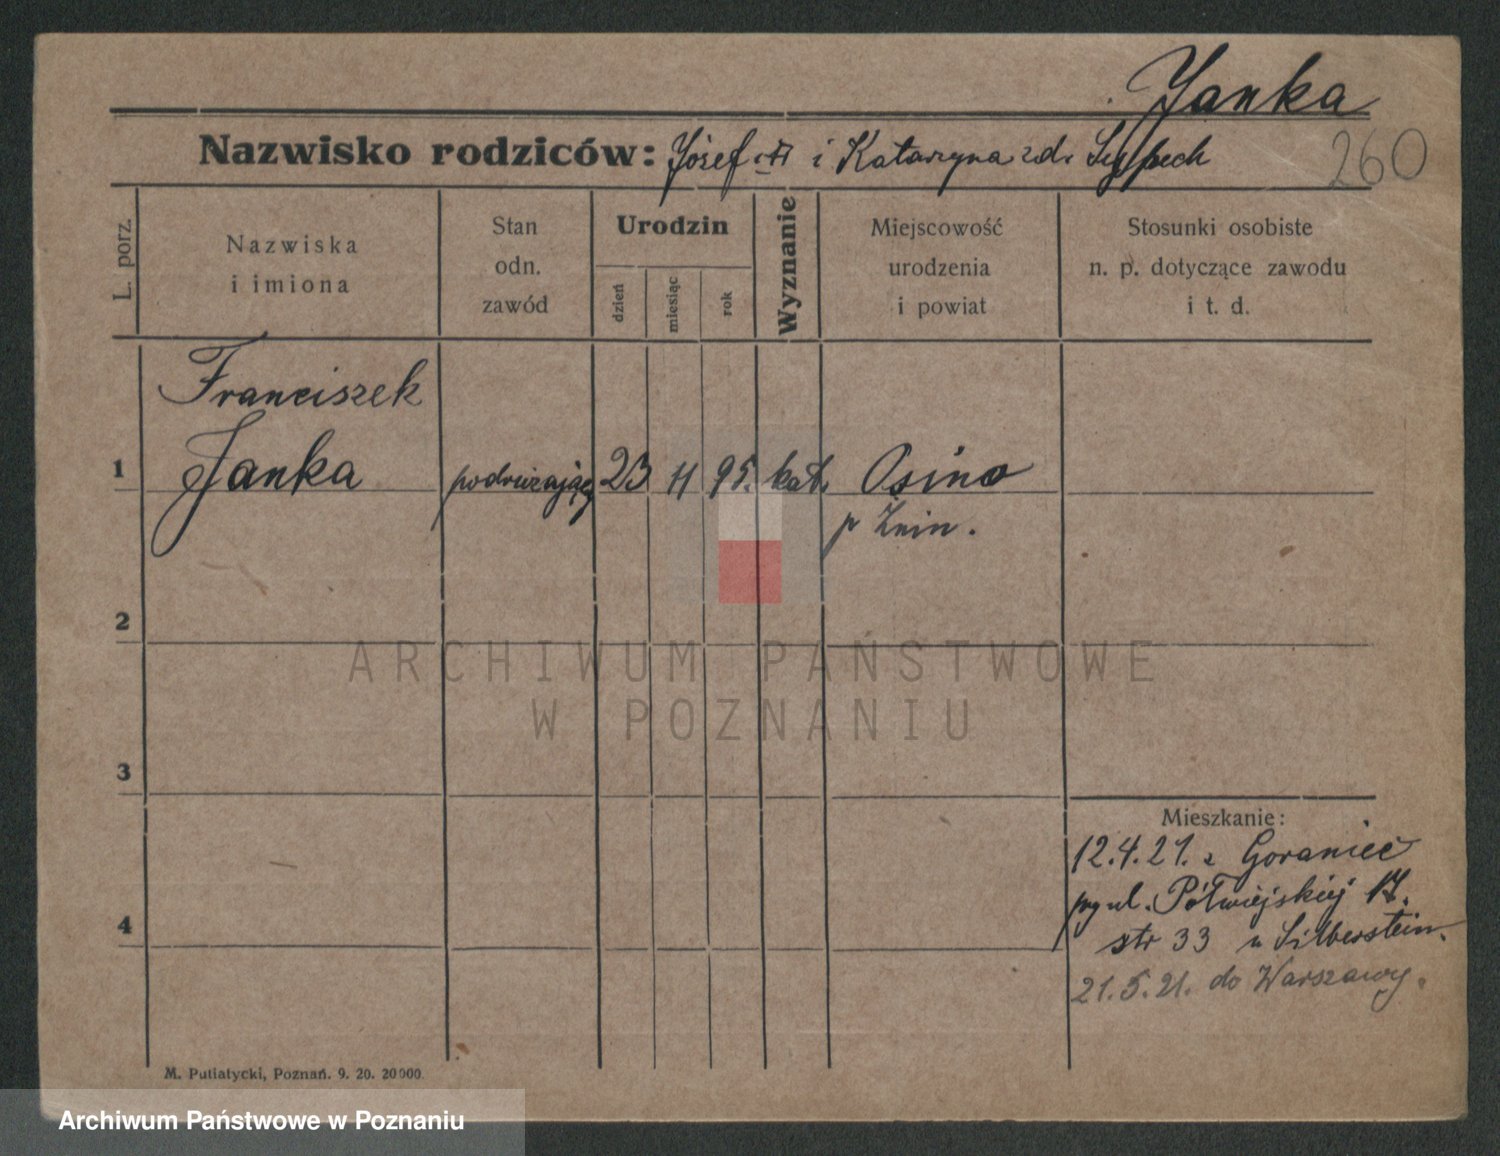 Janka
Nazwisko rodziców: Józef i Katarzyna zd.
260
L. porz.
Nazwiska
i imiona
Stan
odn.
zawód
Urodzin
dzień
miesiąc
rok
Wyznanie
Miejscowość
urodzenia
i powiat
Stosunki osobiste
n. p. dotyczące zawodu
i t. d.
Franciszek
1 Janka podróżający 23 11 95. kat. Osino
p Żnin.
2
3
4
Mieszkanie:
12.4.21. z Goraniec
przy ul. Półwiejskiej 17.
str 33 u Silberstein.
21.5.21. do Warszawy.
M. Putiatycki, Poznań. 9. 20. 20000.
ARCHIWUM PAŃSTWOWE
W POZNANIU
Archiwum Państwowe w Poznaniu